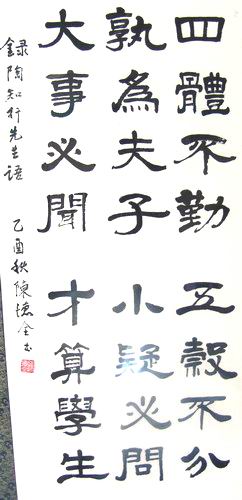 四體不勤　五穀不分
孰為夫子　小疑必問
大事必聞　才算學生
録陶知行先生語　乙酉秋陳德全书